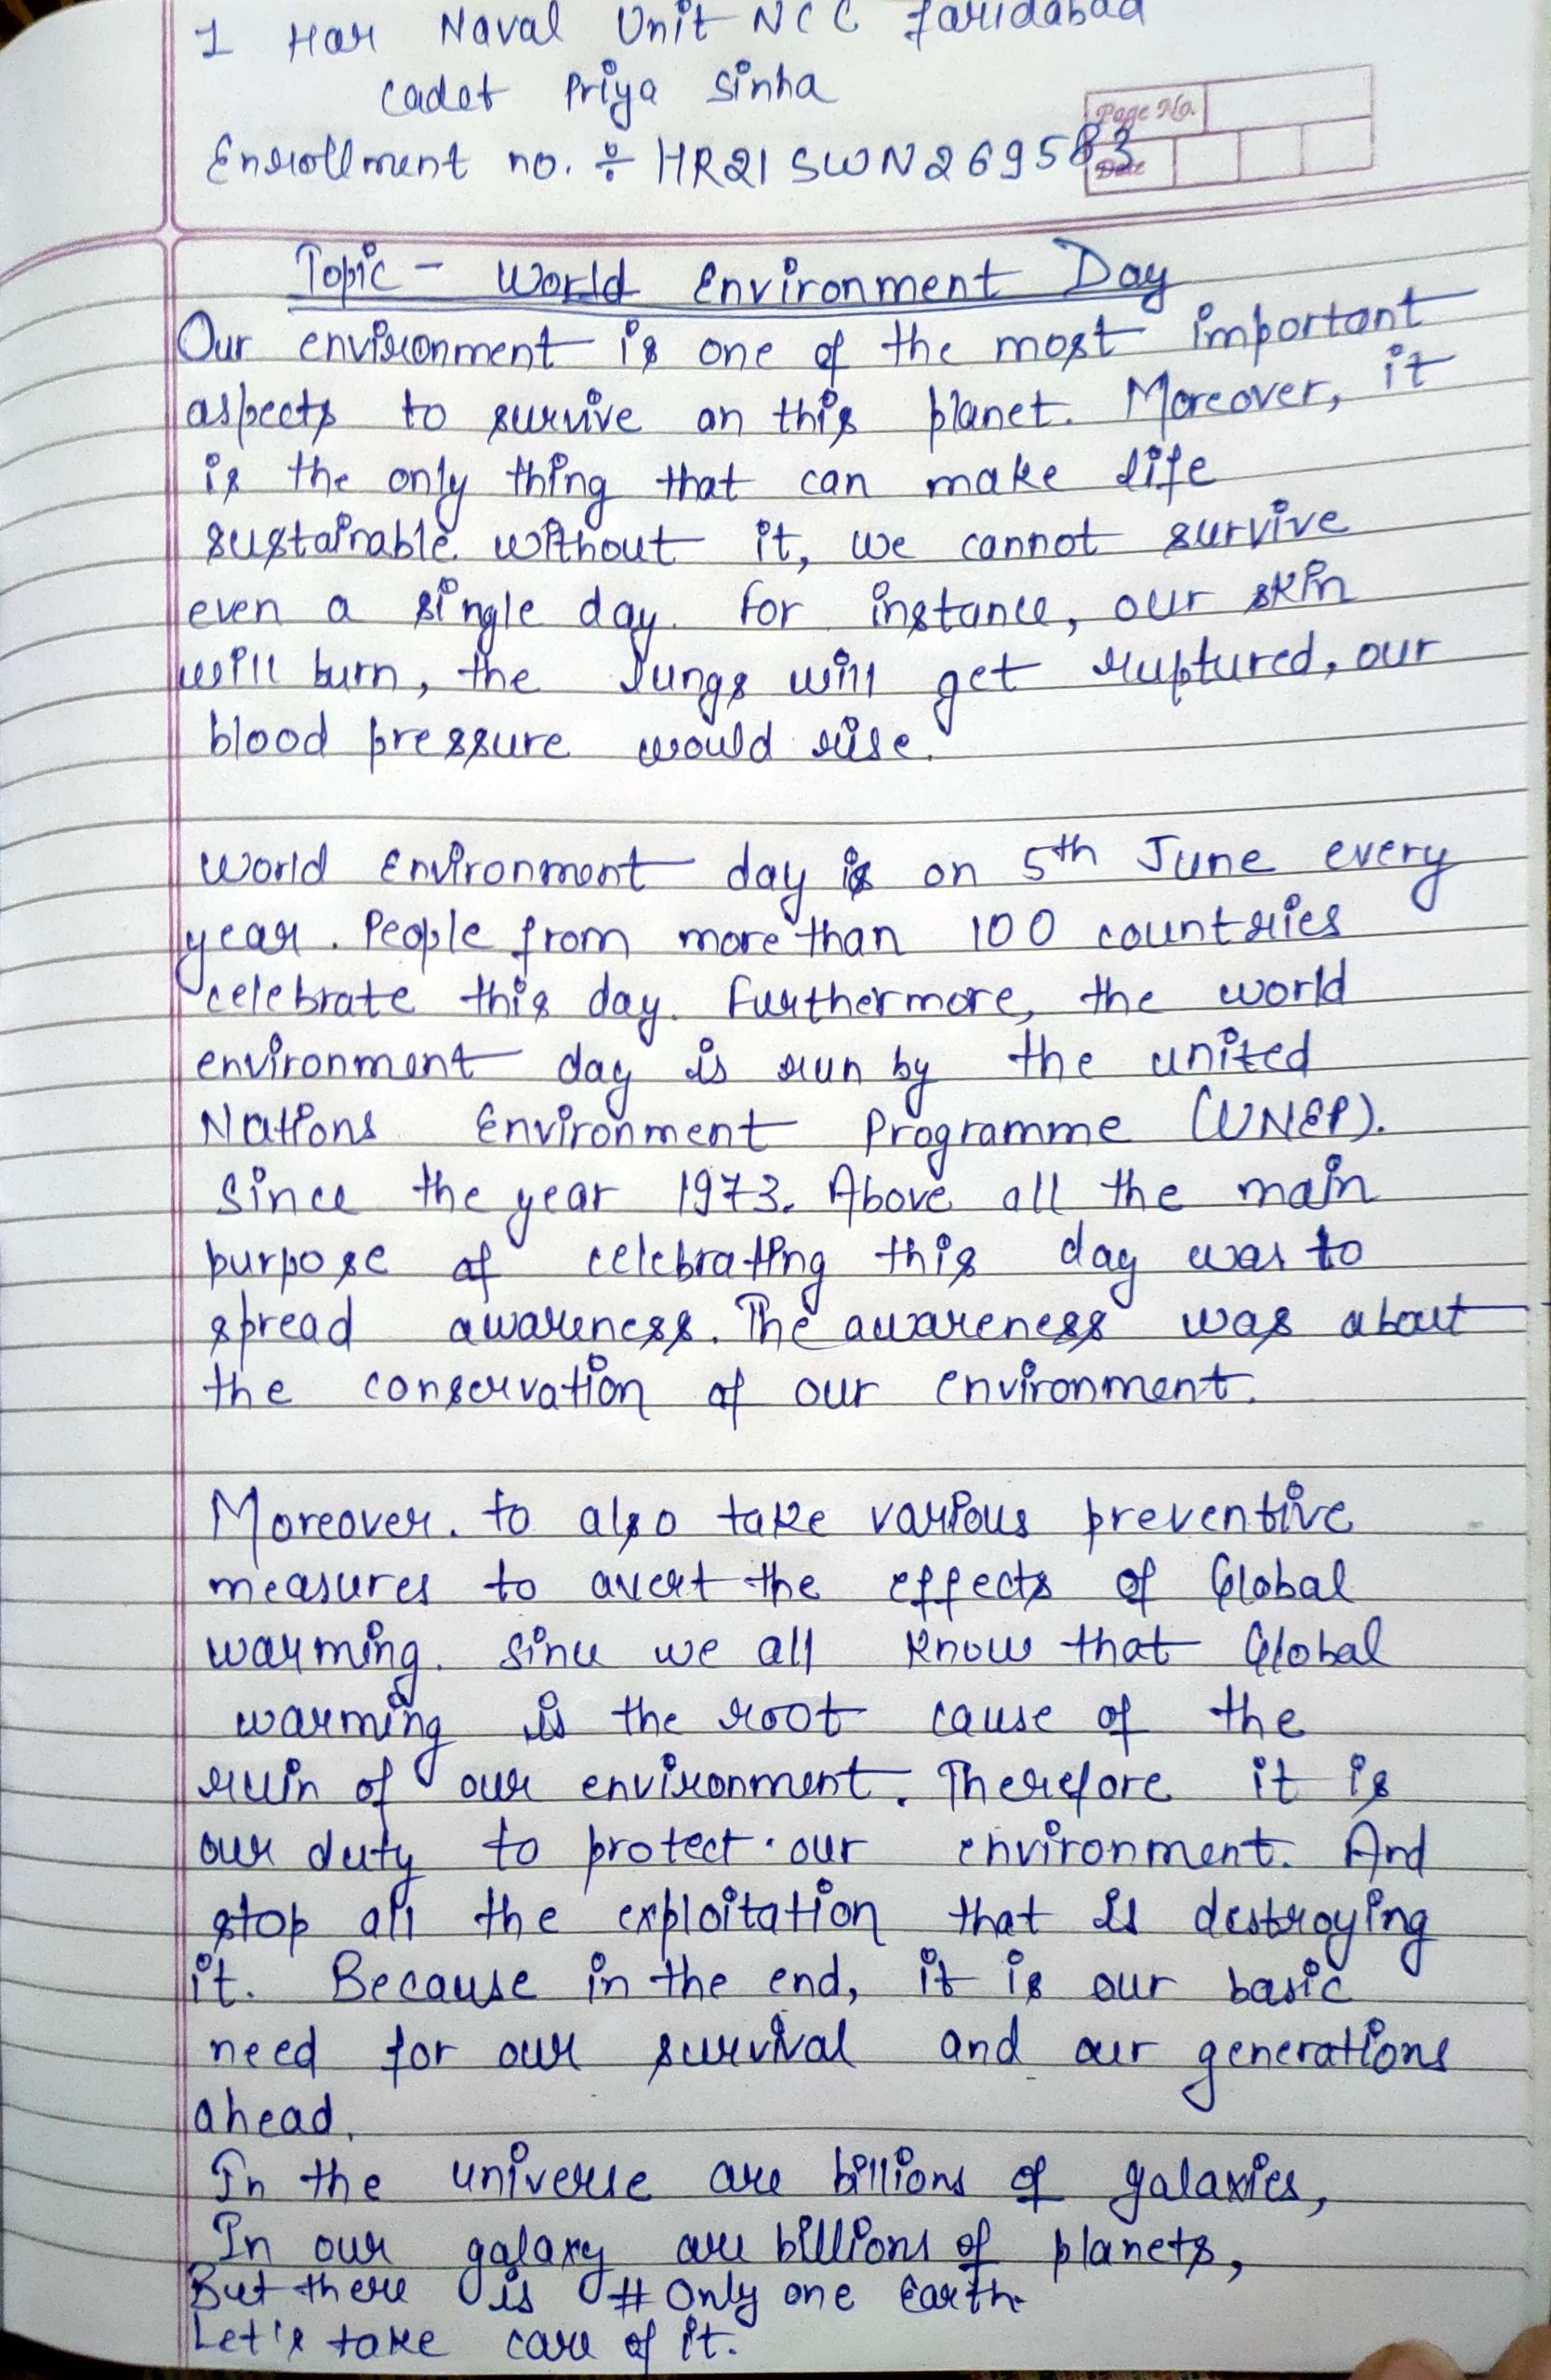 1 Har Naval Unit NCC Faridabad
Cadet Priya Sinha
Page No.
Enrollment no. ÷ HR21SWN269583
Date
Topic - World Environment Day
Our environment is one of the most important
aspects to survive on this planet. Moreover, it
is the only thing that can make life
sustainable. without it, we cannot survive
even a single day. For instance, our skin
will burn, the lungs will get ruptured, our
blood pressure would rise.
World Environment day is on 5th June every
year. People from more than 100 countries
celebrate this day. Furthermore, the world
environment day is run by the united
Nations Environment Programme (UNEP).
Since the year 1973. Above all the main
purpose of celebrating this day was to
spread awareness. The awareness was about
the conservation of our environment.
Moreover. to also take various preventive
measures to avert the effects of Global
warming. Since we all know that Global
warming is the root cause of the
ruin of our environment. Therefore it is
our duty to protect our environment. And
stop all the exploitation that is destroying
it. Because in the end, it is our basic
need for our survival and our generations
ahead.
In the universe are billions of galaxies,
In our galaxy are billions of planets,
But there is # Only one Earth.
Let's take care of it.